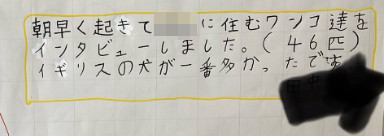 朝早く起きて に住むワンコ達を
インタビューしました。(46匹)
イギリスの犬が一番多かったです